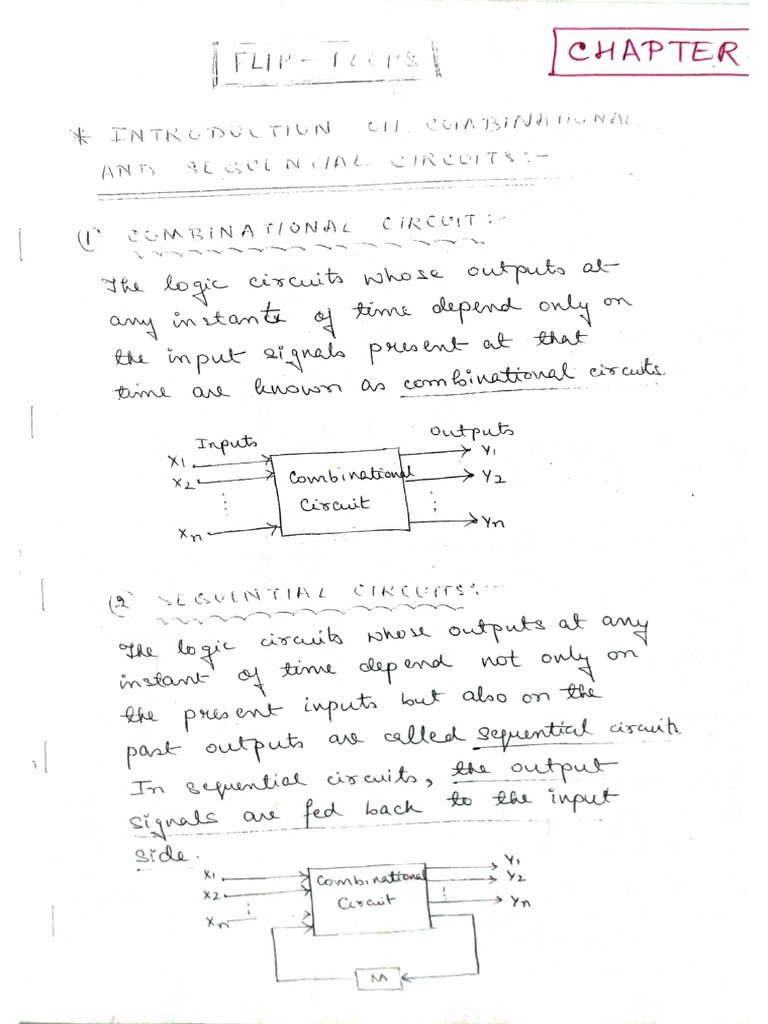 FLIP-FLOPS
CHAPTER
* INTRODUCTION ON COMBINATIONAL
AND SEQUENTIAL CIRCUITS:-
(1) COMBINATIONAL CIRCUIT:-
The logic circuits whose outputs at
any instants of time depend only on
the input signals present at that
time are known as combinational circuits.
Inputs Outputs
X1 Y1
X2 Combinational Y2
Circuit
Xn Yn
(2) SEQUENTIAL CIRCUITS:-
The logic circuits whose outputs at any
instant of time depend not only on
the present inputs but also on the
past outputs are called sequential circuits.
In sequential circuits, the output
signals are fed back to the input
side.
X1 Y1
X2 Combinational Y2
Circuit
Xn Yn
M